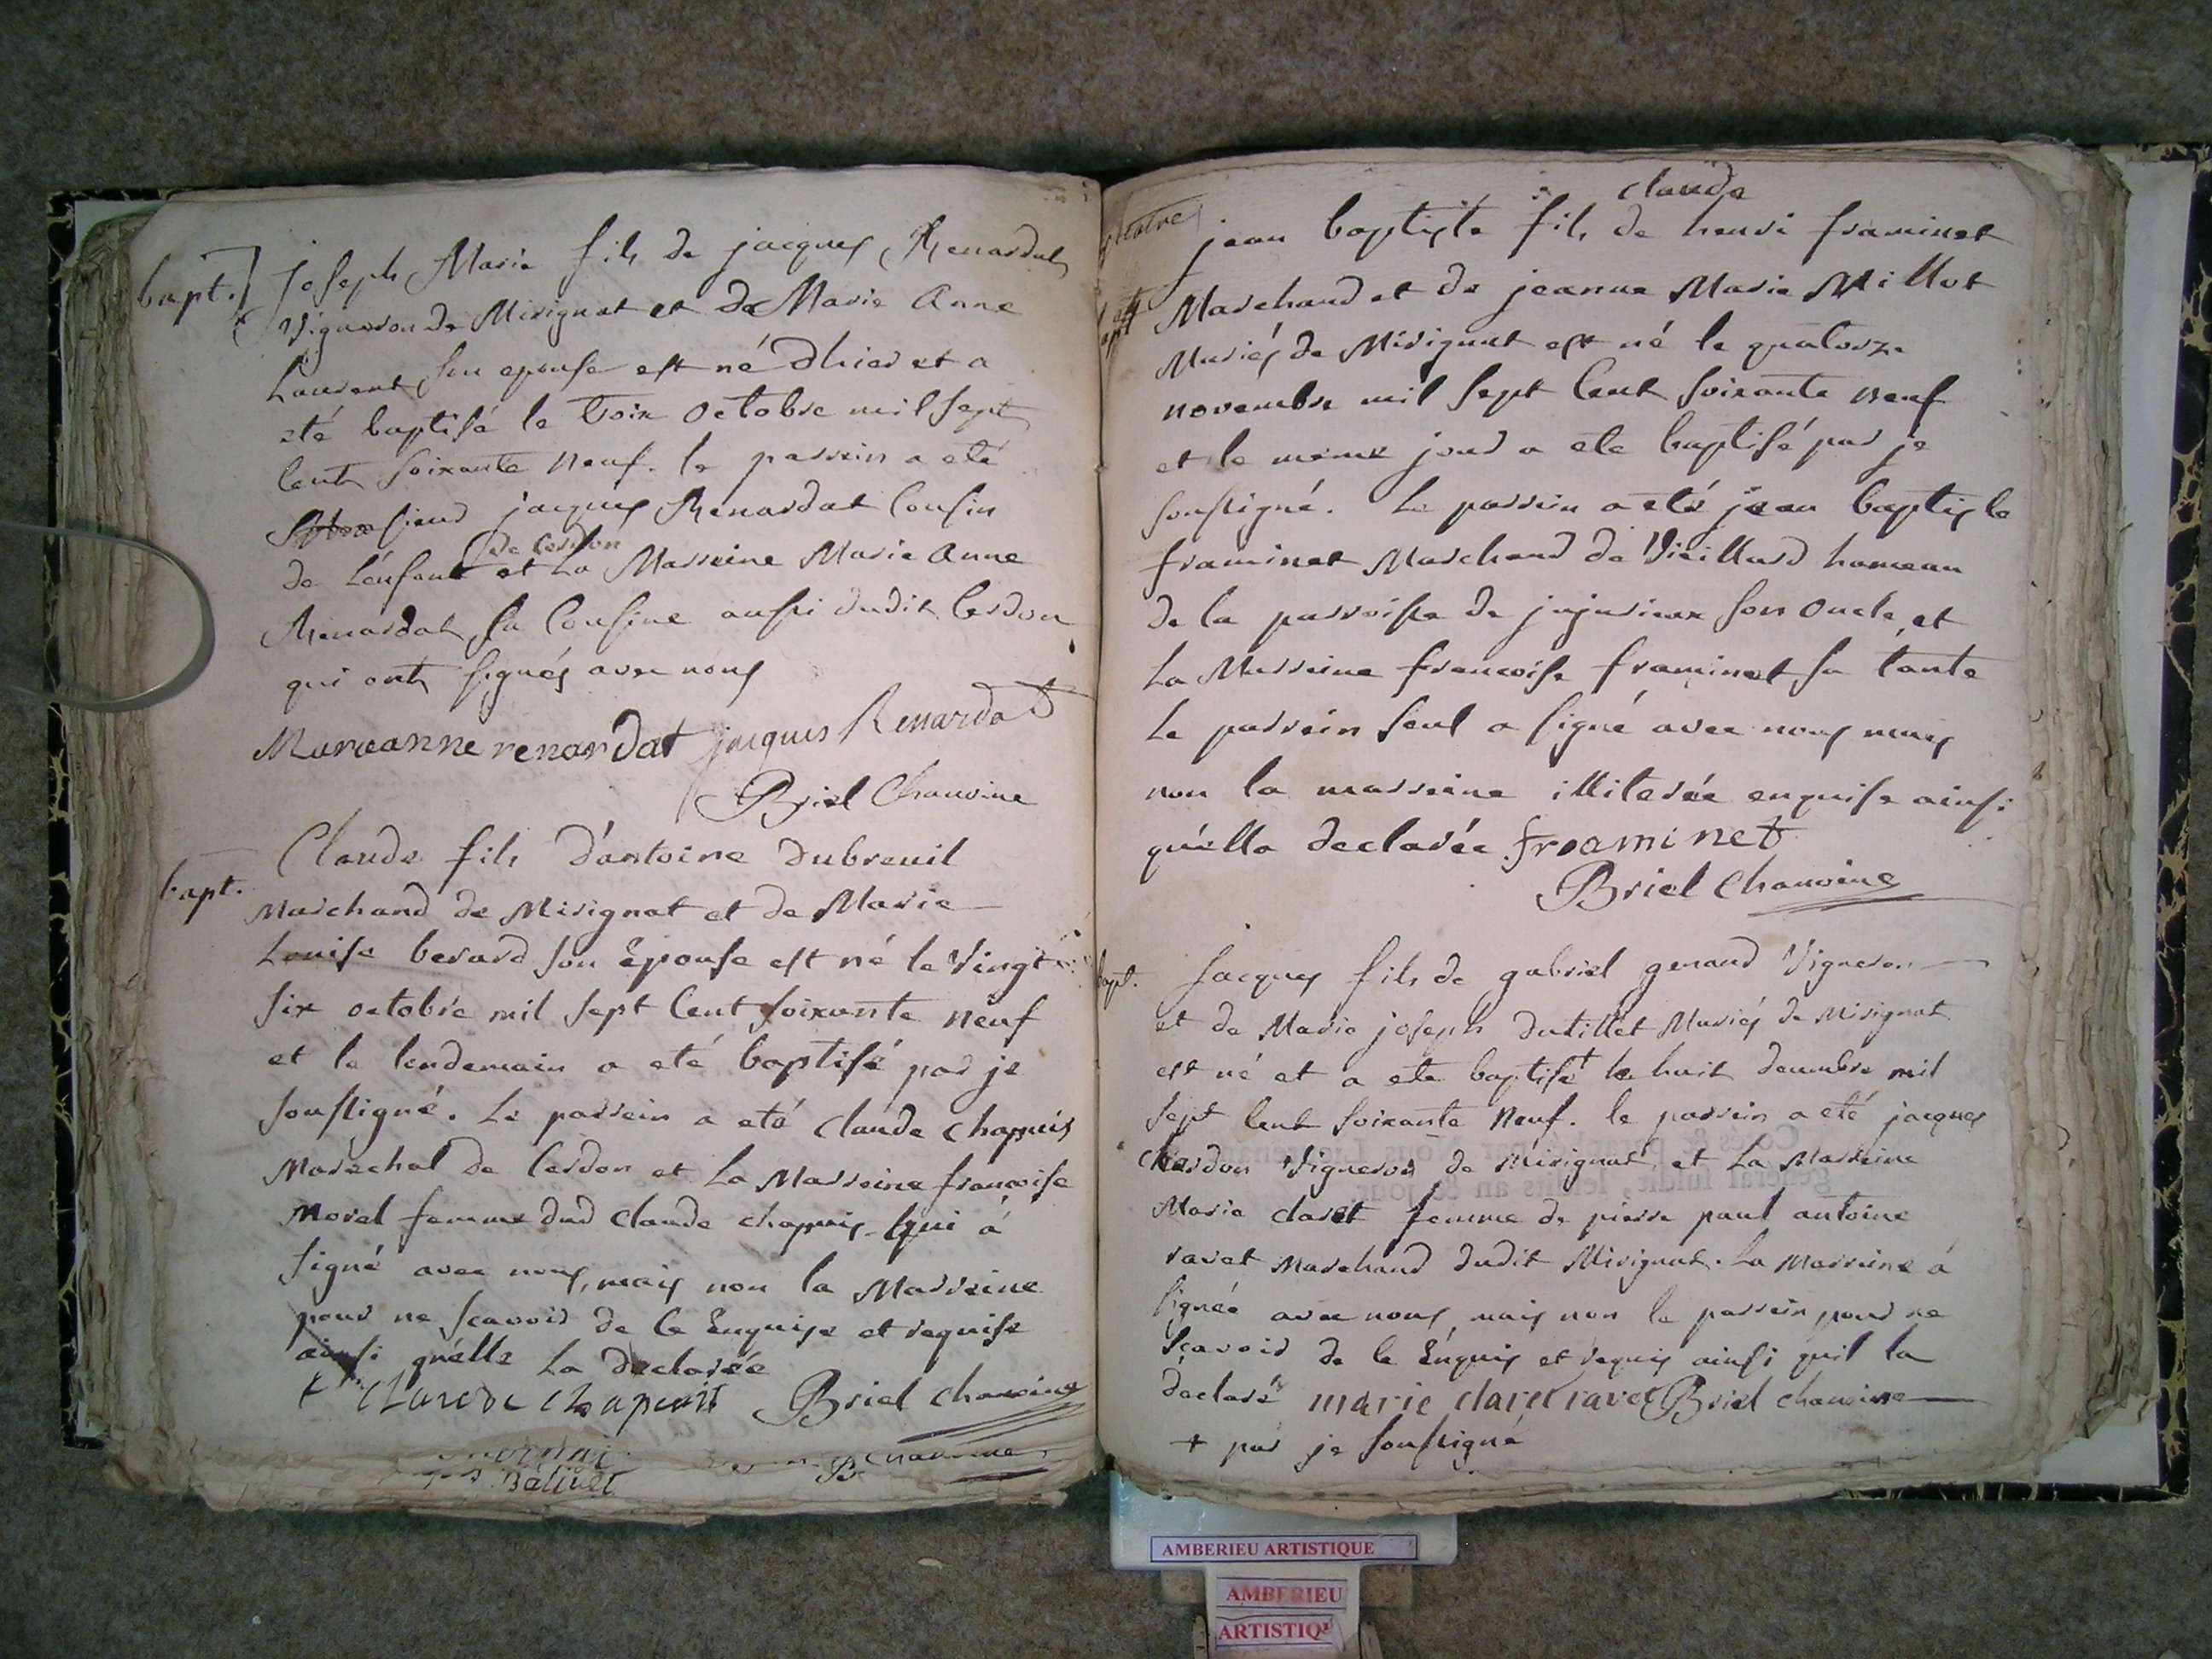 bapt.
Joseph Marie fils de jacques Renardat
Vigneron de Mérignat et de Marie Anne
Laurent son epouse est né d'hier et a
eté baptisé le trois octobre mil sept
Cent soixante neuf. le parrein a eté
sieur jacques Renardat Cousin
de Cerdon
de l'enfant et La Marreine Marie Anne
Renardat sa Cousine aussi dudit Cerdon
qui ont signés avec nous
Marieanne renardat jacques Renardat
Briel Chanoine
bapt.
Claude fils d'antoine Dubreuil
Marchand de Mérignat et de Marie
Louise berard son Epouse est né le Vingt
six octobre mil sept Cent soixante neuf
et le lendemain a eté baptisé par je
soussigné. Le parrein a eté Claude Chapuis
Marechal de Cerdon et La Marreine françoise
Morel femme dud Claude Chapuis qui à
signé avec nous, mais non la Marreine
pour ne scavoir de ce Enquise et requise
ainsi qu'elle La declarée
Claude Chapuis Briel Chanoine
claude
jean baptiste fils de henri framinet
Marchand et de jeanne Marie Millot
Mariés de Mérignat est né le quatorze
novembre mil sept Cent soixante neuf
et le meme jour a ete baptisé par je
soussigné. Le parrein a eté jean baptiste
framinet Marchand de Vieillard hameau
de la parroisse de jujurieux son oncle, et
La Marreine francoise framinet sa tante
Le parrein seul a signé avec nous mais
non la marreine illiterée enquise ainsi
qu'ella declarée. framinet
Briel Chanoine
bapt.
Jacques fils de gabriel genaud Vigneron
et de Marie joseph dutillet Mariés de Mérignat
est né et a ete baptisé + le huit decembre mil
sept Cent soixante neuf. le parrein a eté jacques
Chardon Vigneron de Mérignat, et La Marreine
Marie claret femme de pierre paul antoine
ravet Marchand dudit Mérignat. La Marreine à
signée avec nous, mais non le parrein pour ne
Scavoir de ce Enquis et requis ainsi quil la
declaré marie claret ravet Briel chanoine
+ par je soussigné
AMBERIEU ARTISTIQUE
AMBERIEU
ARTISTIQ